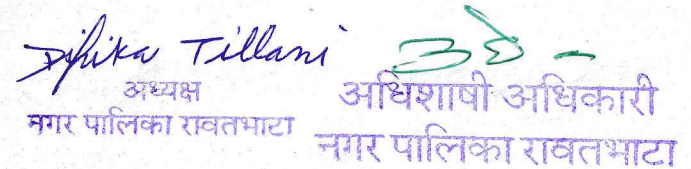 Dipika Tillani
अध्यक्ष
नगर पालिका रावतभाटा
अधिशाषी अधिकारी
नगर पालिका रावतभाटा